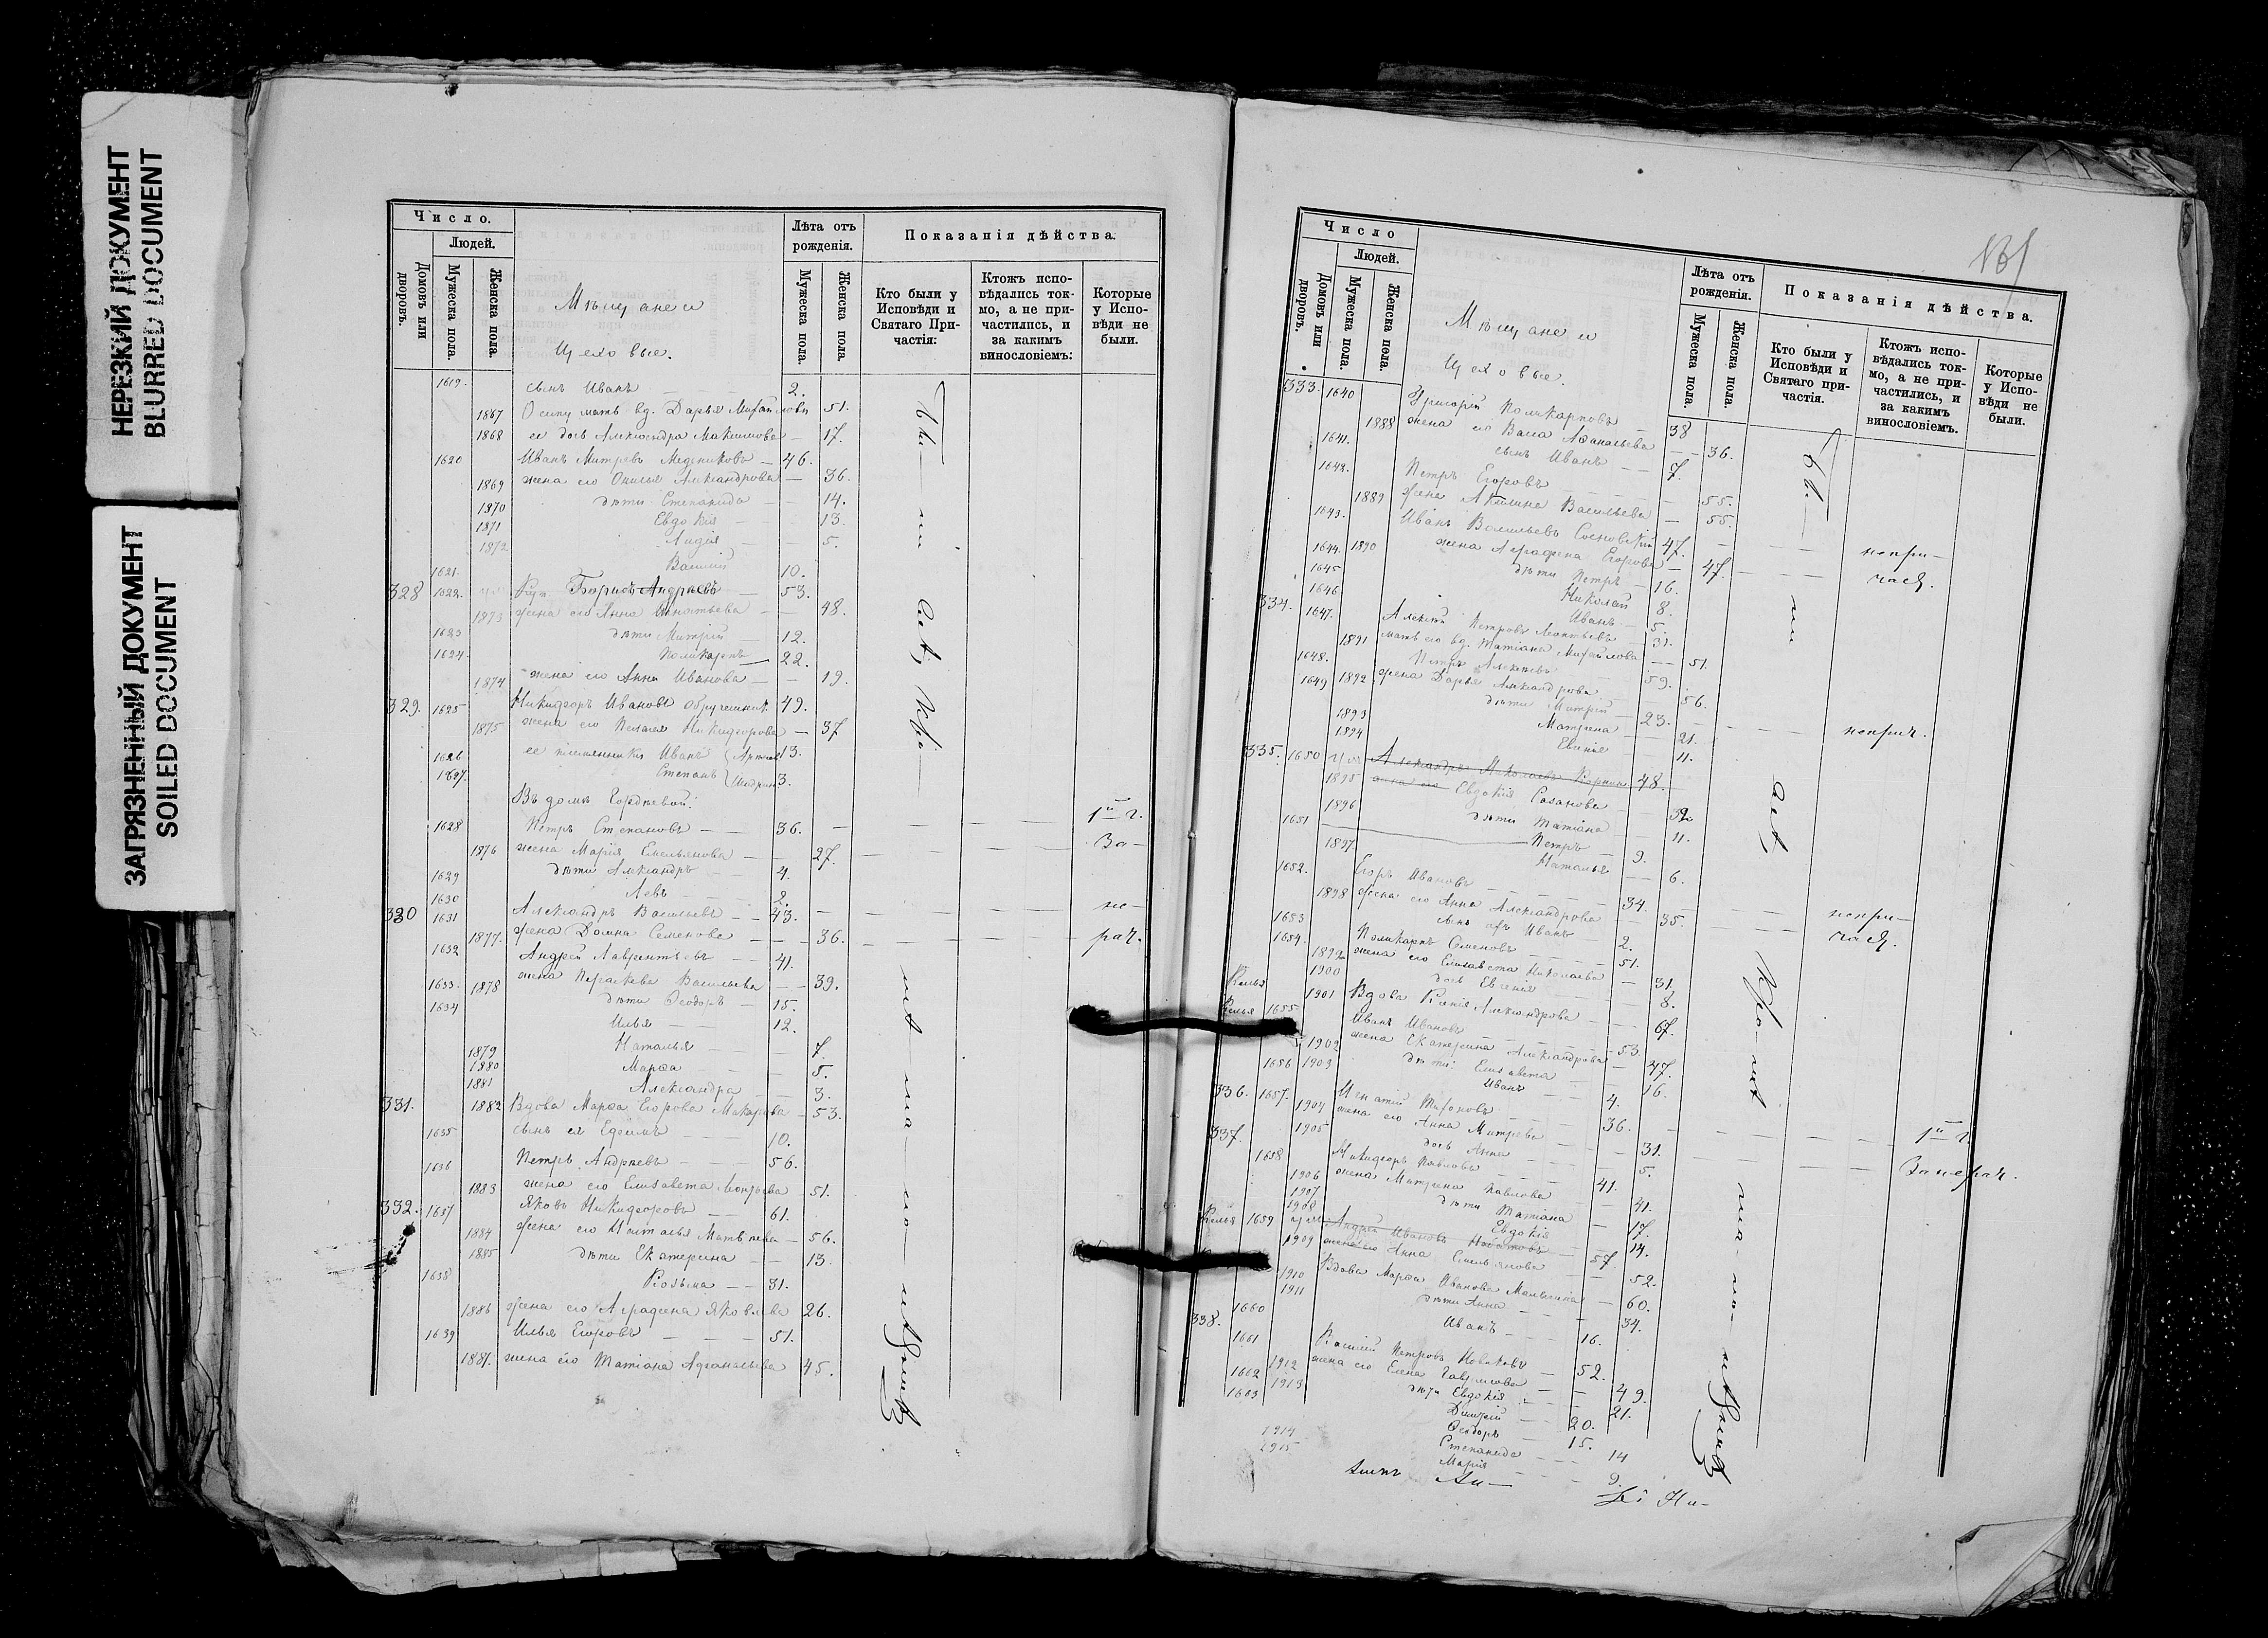 НЕРЕЗКИЙ ДОКУМЕНТ
BLURRED DOCUMENT
ЗАГРЯЗНЕННЫЙ ДОКУМЕНТ
SOILED DOCUMENT
Число.
Людей.
Домовъ или дворовъ.
Мужеска пола.
Женска пола.
Мѣщане и
Цеховые.
Лѣта отъ рожденія.
Мужеска пола.
Женска пола.
Показанія дѣйства.
Кто были у Исповѣди и Святаго Причастія:
Ктожъ исповѣдались токмо, а не причастились, и за какимъ винословіемъ:
Которые у Исповѣди не были.
1619. сынъ Иванъ 2.
1867 Осипу мать вд. Дарья Михайлова 51.
1868 ее дочь Александра Максимова 17.
1620 Иванъ Митревъ Медениковъ 46.
1869 жена его Александрова 36.
1870 дѣти Степанида 14.
1871 Евдокія 13.
1872 Лидія 5.
1621. Василій 10.
328 1622. Борисъ Андреевъ 53.
1873 жена его Анна 48.
1623 дѣти Митрій 12.
1624 Поликарпъ 22.
1874 жена его Анна Иванова 19.
329. 1625 Никифоръ Ивановъ 49.
1875 жена его Пелагея Никифорова 37
1626 ее племянники Иванъ 13.
1627. Степанъ 3.
Въ домѣ Гордѣевой:
1628 Петръ Степановъ 36. 1й г.
1876 жена Марія Емельянова 27. За-
1629 дѣти Александръ 4.
1630 Левъ 2.
330 1631 Александръ Васильевъ 43. не-
1877. жена Домна Семенова 36. рач.
1632 Андрей Лаврентьевъ 41.
1878 жена Параскева Васильева 39.
1633 дѣти Ѳеодоръ 15.
1634 Илья 12.
1879 Наталья 7.
1880 Марѳа 5.
1881 Александра 3.
331. 1882 Вдова Марѳа Егорова Макарова 53.
1635 сынъ ея Ефимъ 10.
1636 Петръ Андреевъ 56.
1883 жена его Елизавета 51.
332. 1637 Яковъ Никифоровъ 61.
1884 жена его Наталья Матвѣева 56.
1885 дѣти Екатерина 13.
1638 Козьма 31.
1886 жена его Аграфена Яковлева 26.
1639 Илья Егоровъ 51.
1887. жена его Татіана Афанасьева 45.
Число
Людей.
Домовъ или дворовъ.
Мужеска пола.
Женска пола.
Мѣщане и
Цеховые.
Лѣта отъ рожденія.
Мужеска пола.
Женска пола.
Показанія дѣйства.
Кто были у Исповѣди и Святаго причастія.
Ктожъ исповѣдались токмо, а не причастились, и за какимъ винословіемъ.
Которые у Исповѣди не были.
333. 1640 Григорій Поликарповъ 38
1888 жена его Васса Афанасьева 36.
1641. сынъ Иванъ 7.
1642. Петръ Егоровъ 55.
1889 жена Акилина Васильева 55.
1643. Иванъ Васильевъ Сосновскій 47. непри-
1890 жена Аграфена Егорова 47. част.
1644. дѣти Петръ 16.
1645 Николай 8.
1646 Иванъ 5.
334. 1647. Алексѣй Петровъ Леонтьевъ 31.
1891 мать его вд. Татіана Михайлова 51.
1648. Петръ Алексѣевъ 59.
1892 жена Дарья Александрова 56.
1649 дѣти Митрій 23. неприч.
1893 Матрена 21.
1894 Евгенія 11.
335. 1650 Александръ Николаевъ 48.
1895 жена его Евдокія Сазанова 39
1896 дѣти Татіана 11.
1651 Петръ 9.
1897 Наталья 6.
1652. Егоръ Ивановъ 34. непри-
1898 жена его Анна Александрова 35. част.
1653 сынъ ихъ Иванъ 2.
1654. Поликарпъ Семеновъ 51.
1899 жена его Елизавета Николаева 31.
1900 дочь Евгенія 8.
Келья 1901 Вдова Ксенія Александрова 67.
Келья 1655 Иванъ Ивановъ 53.
1902 жена Екатерина Александрова 47.
1903 дѣти: Елизавета 16.
1656 Иванъ 4.
336. 1657. Игнатій Тихоновъ 36. 1й г.
1904 жена его Анна Митрева 31. За нерач.
1905 дочь Анна 5.
337. 1658 Никифоръ Павловъ 41.
1906 жена Матрена Павлова 41.
1907 дѣти Татіана 17.
1908 Евдокія 14.
Келья 1659 Андрей Ивановъ 57.
1909 жена его Анна Емельянова 52.
1910 Вдова Марѳа Иванова 60.
1911 дѣти Анна 34.
1660 Иванъ 16.
338. 1661 Василій Петровъ Новиковъ 52.
1912 жена его Елена Гаврилова 49.
1913 дѣти Евдокія 21.
1662 Димитрій 20.
1663 Ѳеодоръ 15.
1914 Степанида 14
1915 Марія 9.